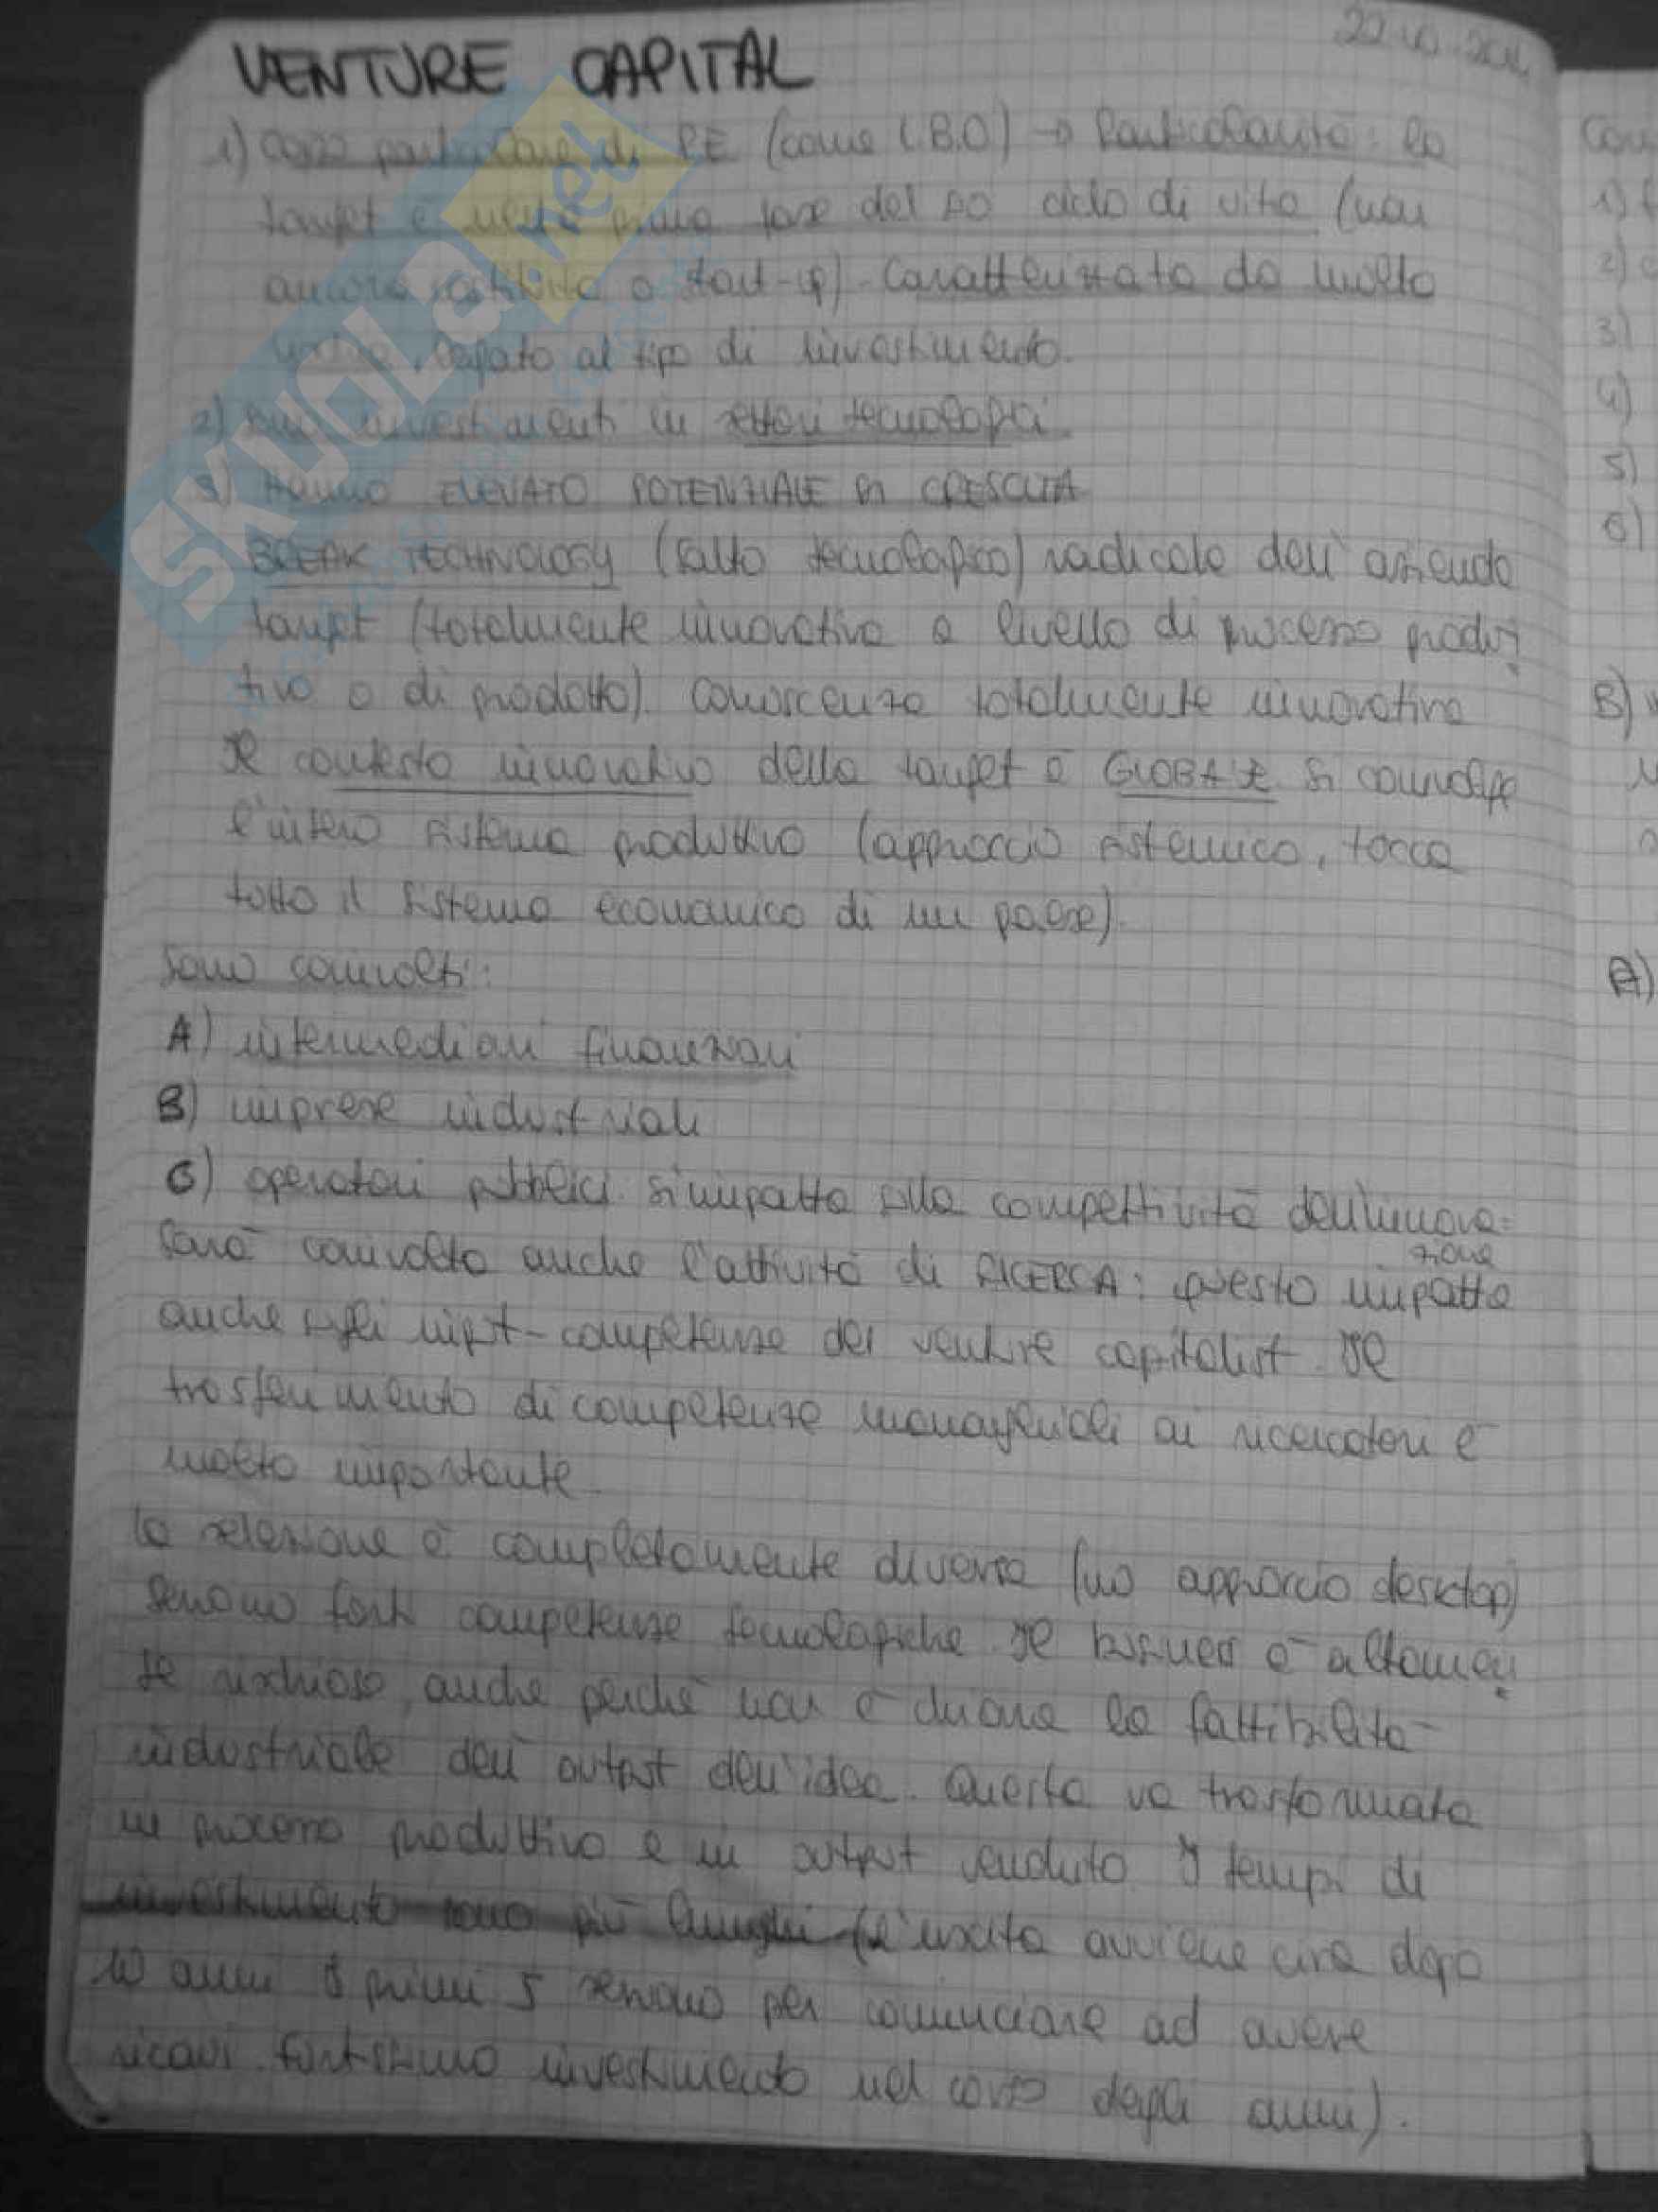 22.10.
VENTURE CAPITAL
1) Caso particolare di PE (come L.B.O) → Particolarità: la
target è nella prima fase del so ciclo di vita (non
ancora costituita o start-up). Caratterizzata da molto
legato al tipo di investimento.
2) Sono investimenti in settori tecnologici.
3) Hanno ELEVATO POTENZIALE DI CRESCITA
BREAK TECHNOLOGY (salto tecnologico) radicale dell'azienda
target (totalmente innovativa a livello di processo produt
tivo o di prodotto). Conoscenza totalmente innovativa
Il contesto innovativo della target è GLOBALE. Si coinvolge
l'intero sistema produttivo (approccio sistemico, tocca
tutto il sistema economico di un paese).
Sono coinvolti:
A) intermediari finanziari
B) imprese industriali
C) operatori pubblici. Si impatta sulla competitività dell'innova=
zione
Sarà coinvolta anche l'attività di RICERCA: questo impatta
anche sugli input-competenze del venture capitalist. Il
trasferimento di competenze manageriali ai ricercatori è
molto importante.
La selezione è completamente diversa (no approccio desktop)
Servono forti competenze tecnologiche. Il business è altamen
te rischioso, anche perché non è chiara la fattibilità
industriale dell'output dell'idea. Questa va trasformata
in processo produttivo e in output venduto. I tempi di
investimento sono più lunghi (l'uscita avviene circa dopo
10 anni I primi 5 servono per cominciare ad avere
ricavi. Fortissimo investimento nel corso degli anni).
Con
1)
2)
3)
4)
5)
6)
B)
A)
SKUOLA.net